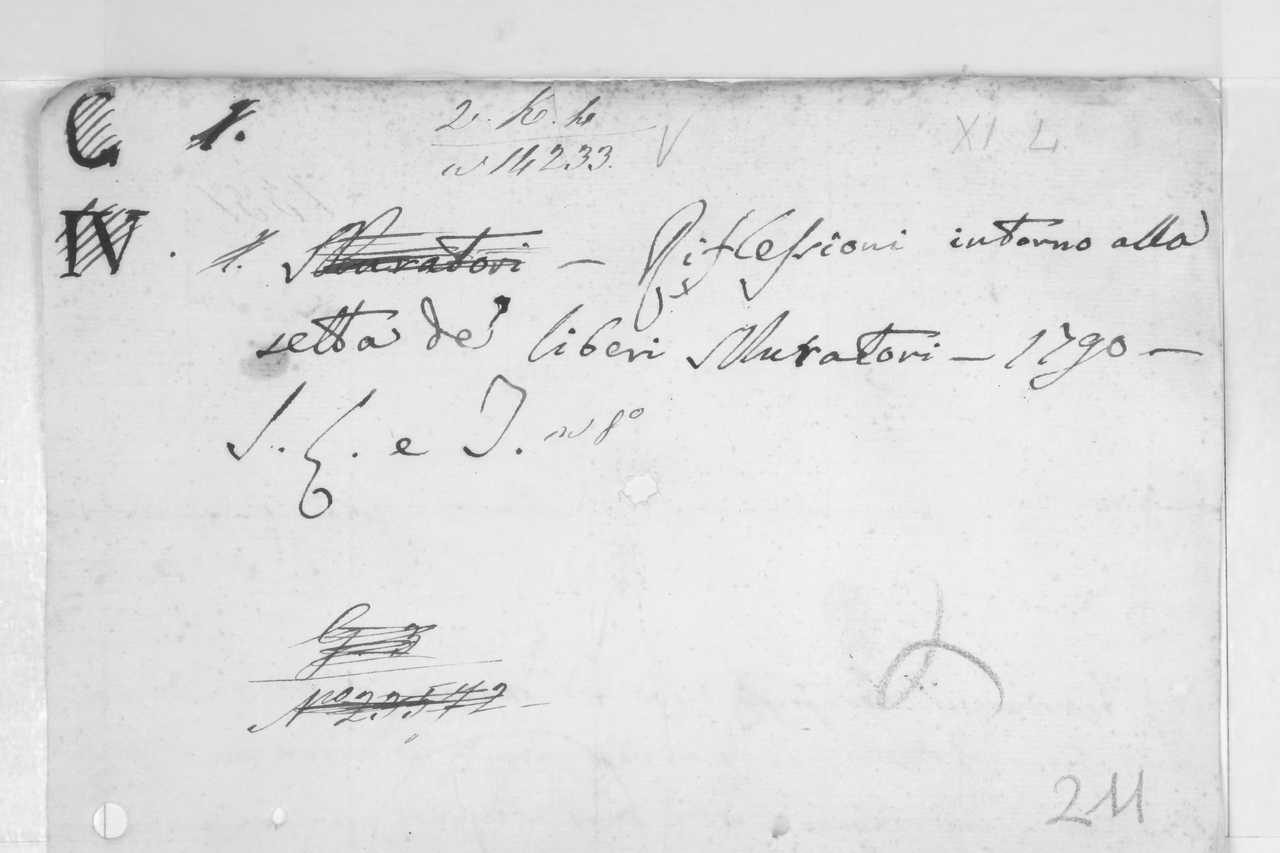 C 1.
2. K. 4
nº 14233.
XI L
IV. 1. Muratori — Riflessioni intorno alla
setta de' liberi Muratori — 1790 —
S. L. e T. in 8º
G. 3
Nº 23572
211